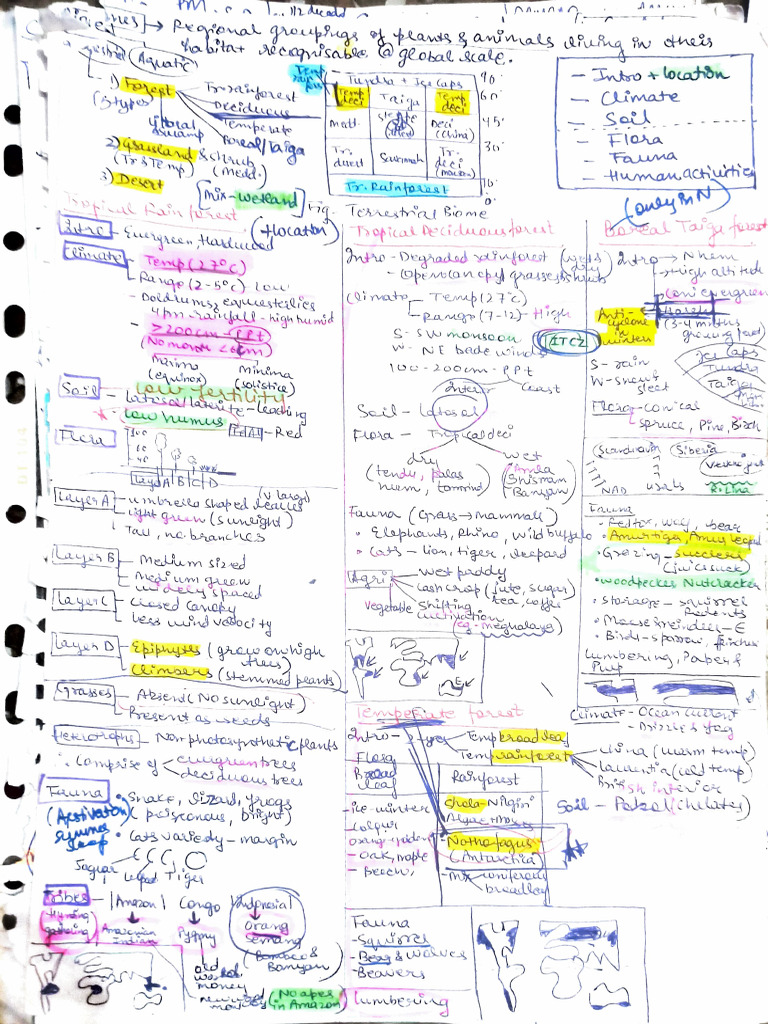 → Regional groupings of plants & animals living in their
habitat recognisable @ global scale.
Aquatic
1) Forest
(5 types)
Tr. rainforest
Deciduous
Temperate
Boreal/Taiga
littoral
swamp
2) Grassland & shrub
(Tr & Temp) (Medd.)
3) Desert
[mix - wetland]
Tundra + Ice Caps
Temp deci
Taiga
Temp deci
medt.
Deci (China)
Tr. desert
Savannah
Tr. deci
Tr. Rainforest
90°
60°
45°
30°
10°
0°
Fig - Terrestrial Biome
- Intro + location
- Climate
- Soil
- Flora
- Fauna
- Human activities
Tropical Rain forest
Intro - Evergreen Hardwood
(+location)
Climate - Temp (27°C)
- Range (2-5°C) low
- Doldrums, equatorial
4 pm - rainfall - high humid
- >200cm - PPT
(No month < 6cm)
Maxima (equinox)
Minima (solistice)
Soil - Low-fertility
- latosol/laterite - leaching
* Low humus
Fe+Al - Red
Flora
Layer A B C D
Layer A - umbrella shaped leaves (v large)
- light green (sunlight)
- Tall, no branches
Layer B - Medium sized
- Medium green
- widely spaced
Layer C - closed canopy
- less wind velocity
Layer D - Epiphytes (grow on high trees)
- Climbers (stemmed plants)
Grasses - Absent (No sunlight)
- Present as weeds
Heterotrophs - Non photosynthetic plants
∴ Comprise of evergreen trees
deciduous trees
Fauna • Snake, lizard, frogs
(poisonous, bright)
• Cats variety - margin
Jaguar Leopard Tiger
Tribes - |Amazon| Congo Indonesia|
Hunting gathering
Amazonian Indian
Pygmy
Orang
Semang
(Bamboo & Banyan)
old world money
new world monkey
(No apes in Amazon)
Tropical Deciduous forest
Intro - Degraded rainforest
- (Open canopy) grasses & shrub
Climate - Temp (27°C)
Range (7-12) - High
S - SW monsoon
ITCZ
W - NE trade winds
100-200cm - PPT
Inter
Coast
Soil - latosol
Flora - Tropical deci
dry
wet
(tendu, palas
neem, tamarind)
(Amla
Shisham
Banyan)
Fauna (Grass → mammals)
• Elephants, Rhino, wild buffalo
• Cats - lion, tiger, leopard
Agri
wet paddy
Cash crop (jute, sugar,
tea, coffee)
Vegetable
Shifting
cultivation
(eg. meghalaya)
Temperate forest
Intro - 2 types
Temp broadleaf
Temp rainforest
China (warm temp)
laurentia (cold temp)
British interior
Flora
Broad leaf
Rainforest
- Shola - Nilgiri
- Algae + Moss
- Nothofagus
(Antarctica)
- mix coniferous
broadleaf
- ice-winter
- colour
- oak, maple
- beech,
Soil - Podzol (chelates)
Fauna
- Squirrel
- Bear & wolves
- Beavers
Lumbering
(only in N)
Boreal Taiga forest
Intro → N hem
→ High altitude
→ Coni evergreen
→ Harsh
(3-4 months
growing period)
Anti-cyclone in winter
S - rain
W - snow
sleet
Ice Caps
Tundra
Taiga
Flora - conical
spruce, Pine, Birch
Scandinavia
Siberia
Fauna
• Red fox, wolf, bear
• Amur tiger, Amur leopard
• Grazing - succlers
(juice suck)
• woodpecker Nutcracker
• Storage - squirrel
Rodents
• Moose reindeer - E
• Birds - sparrow, finches
Lumbering, Paper &
Pulp
Climate - Ocean current
- Drizzle & fog